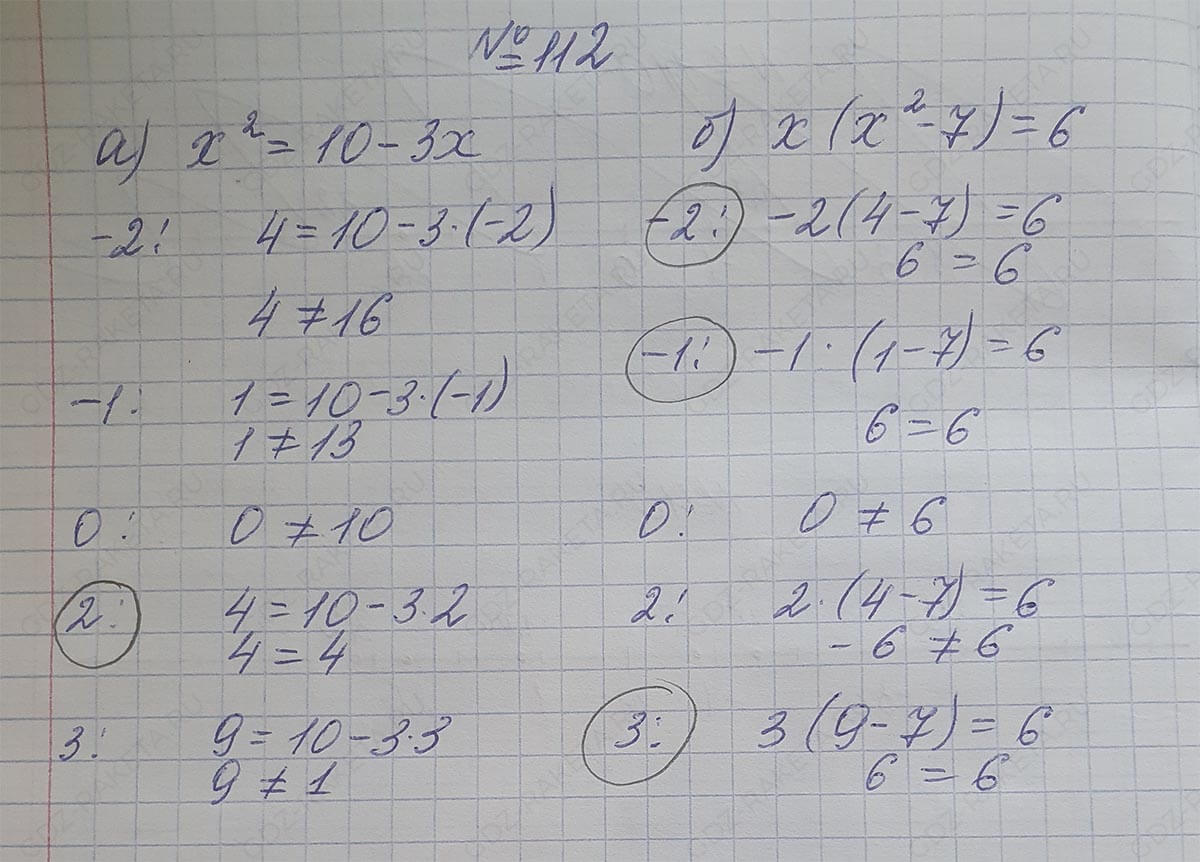 № 112
а) x² = 10 - 3x
-2: 4 = 10 - 3·(-2)
4 ≠ 16
-1: 1 = 10 - 3·(-1)
1 ≠ 13
0: 0 ≠ 10
2: 4 = 10 - 3·2
4 = 4
3: 9 = 10 - 3·3
9 ≠ 1
б) x(x² - 7) = 6
-2: -2(4 - 7) = 6
6 = 6
-1: -1·(1 - 7) = 6
6 = 6
0: 0 ≠ 6
2: 2·(4 - 7) = 6
-6 ≠ 6
3: 3(9 - 7) = 6
6 = 6
GDZ-RAKETA.RU